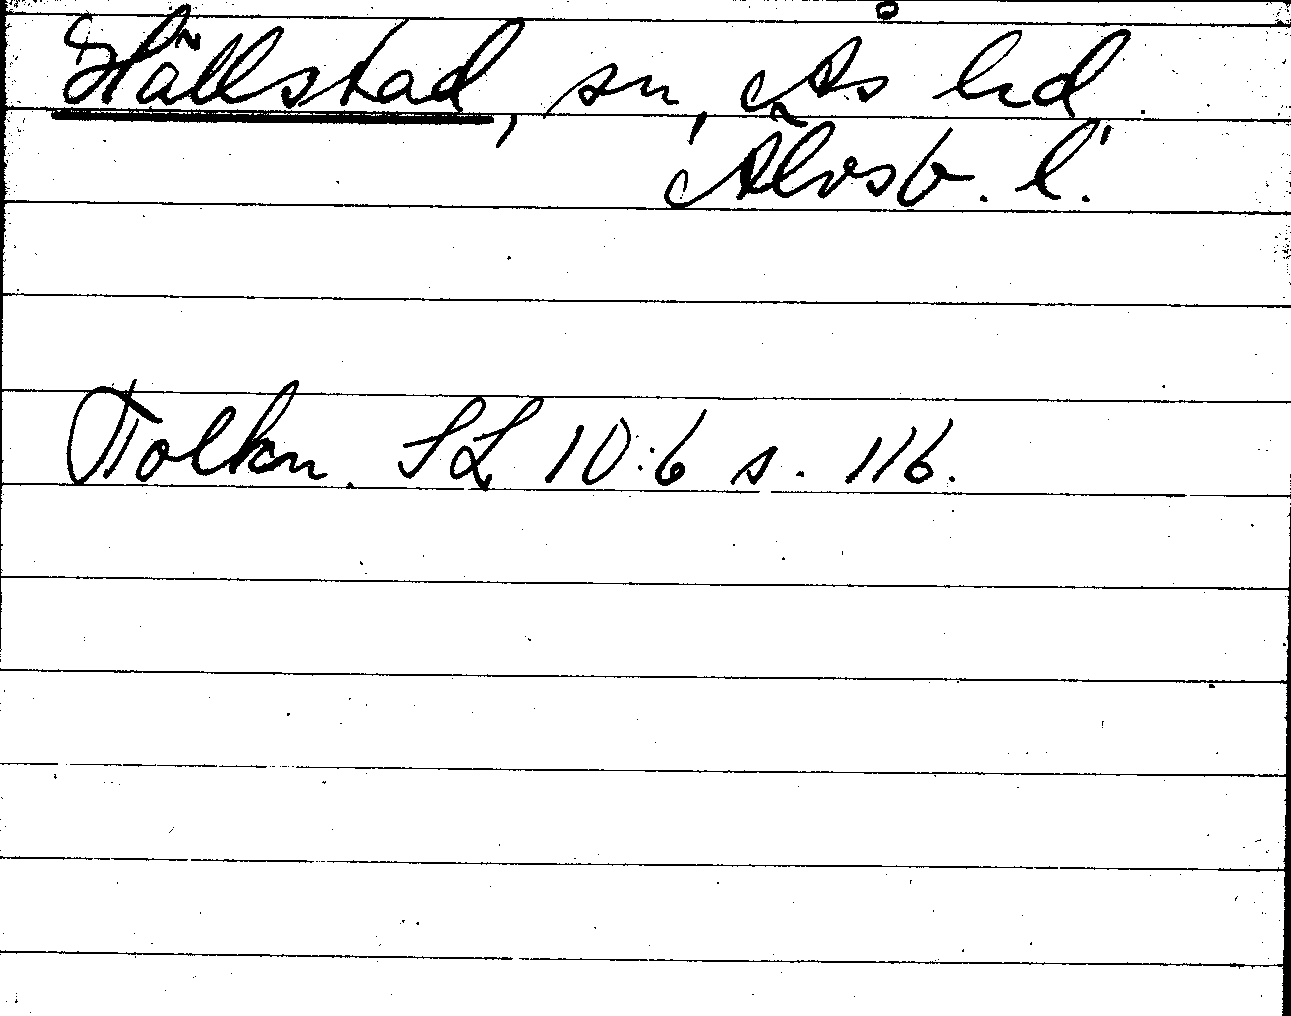 Hällstad, sn, Ås hd,
Älvsb. l.
Tolkn. SL 10:6 s. 116.